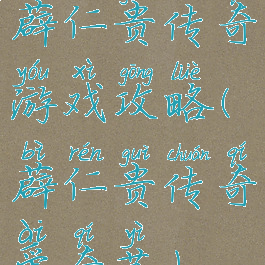 薛仁贵传奇
yóu xì gōng lüè
游戏攻略(
bì rén guì chuán qí
薛仁贵传奇